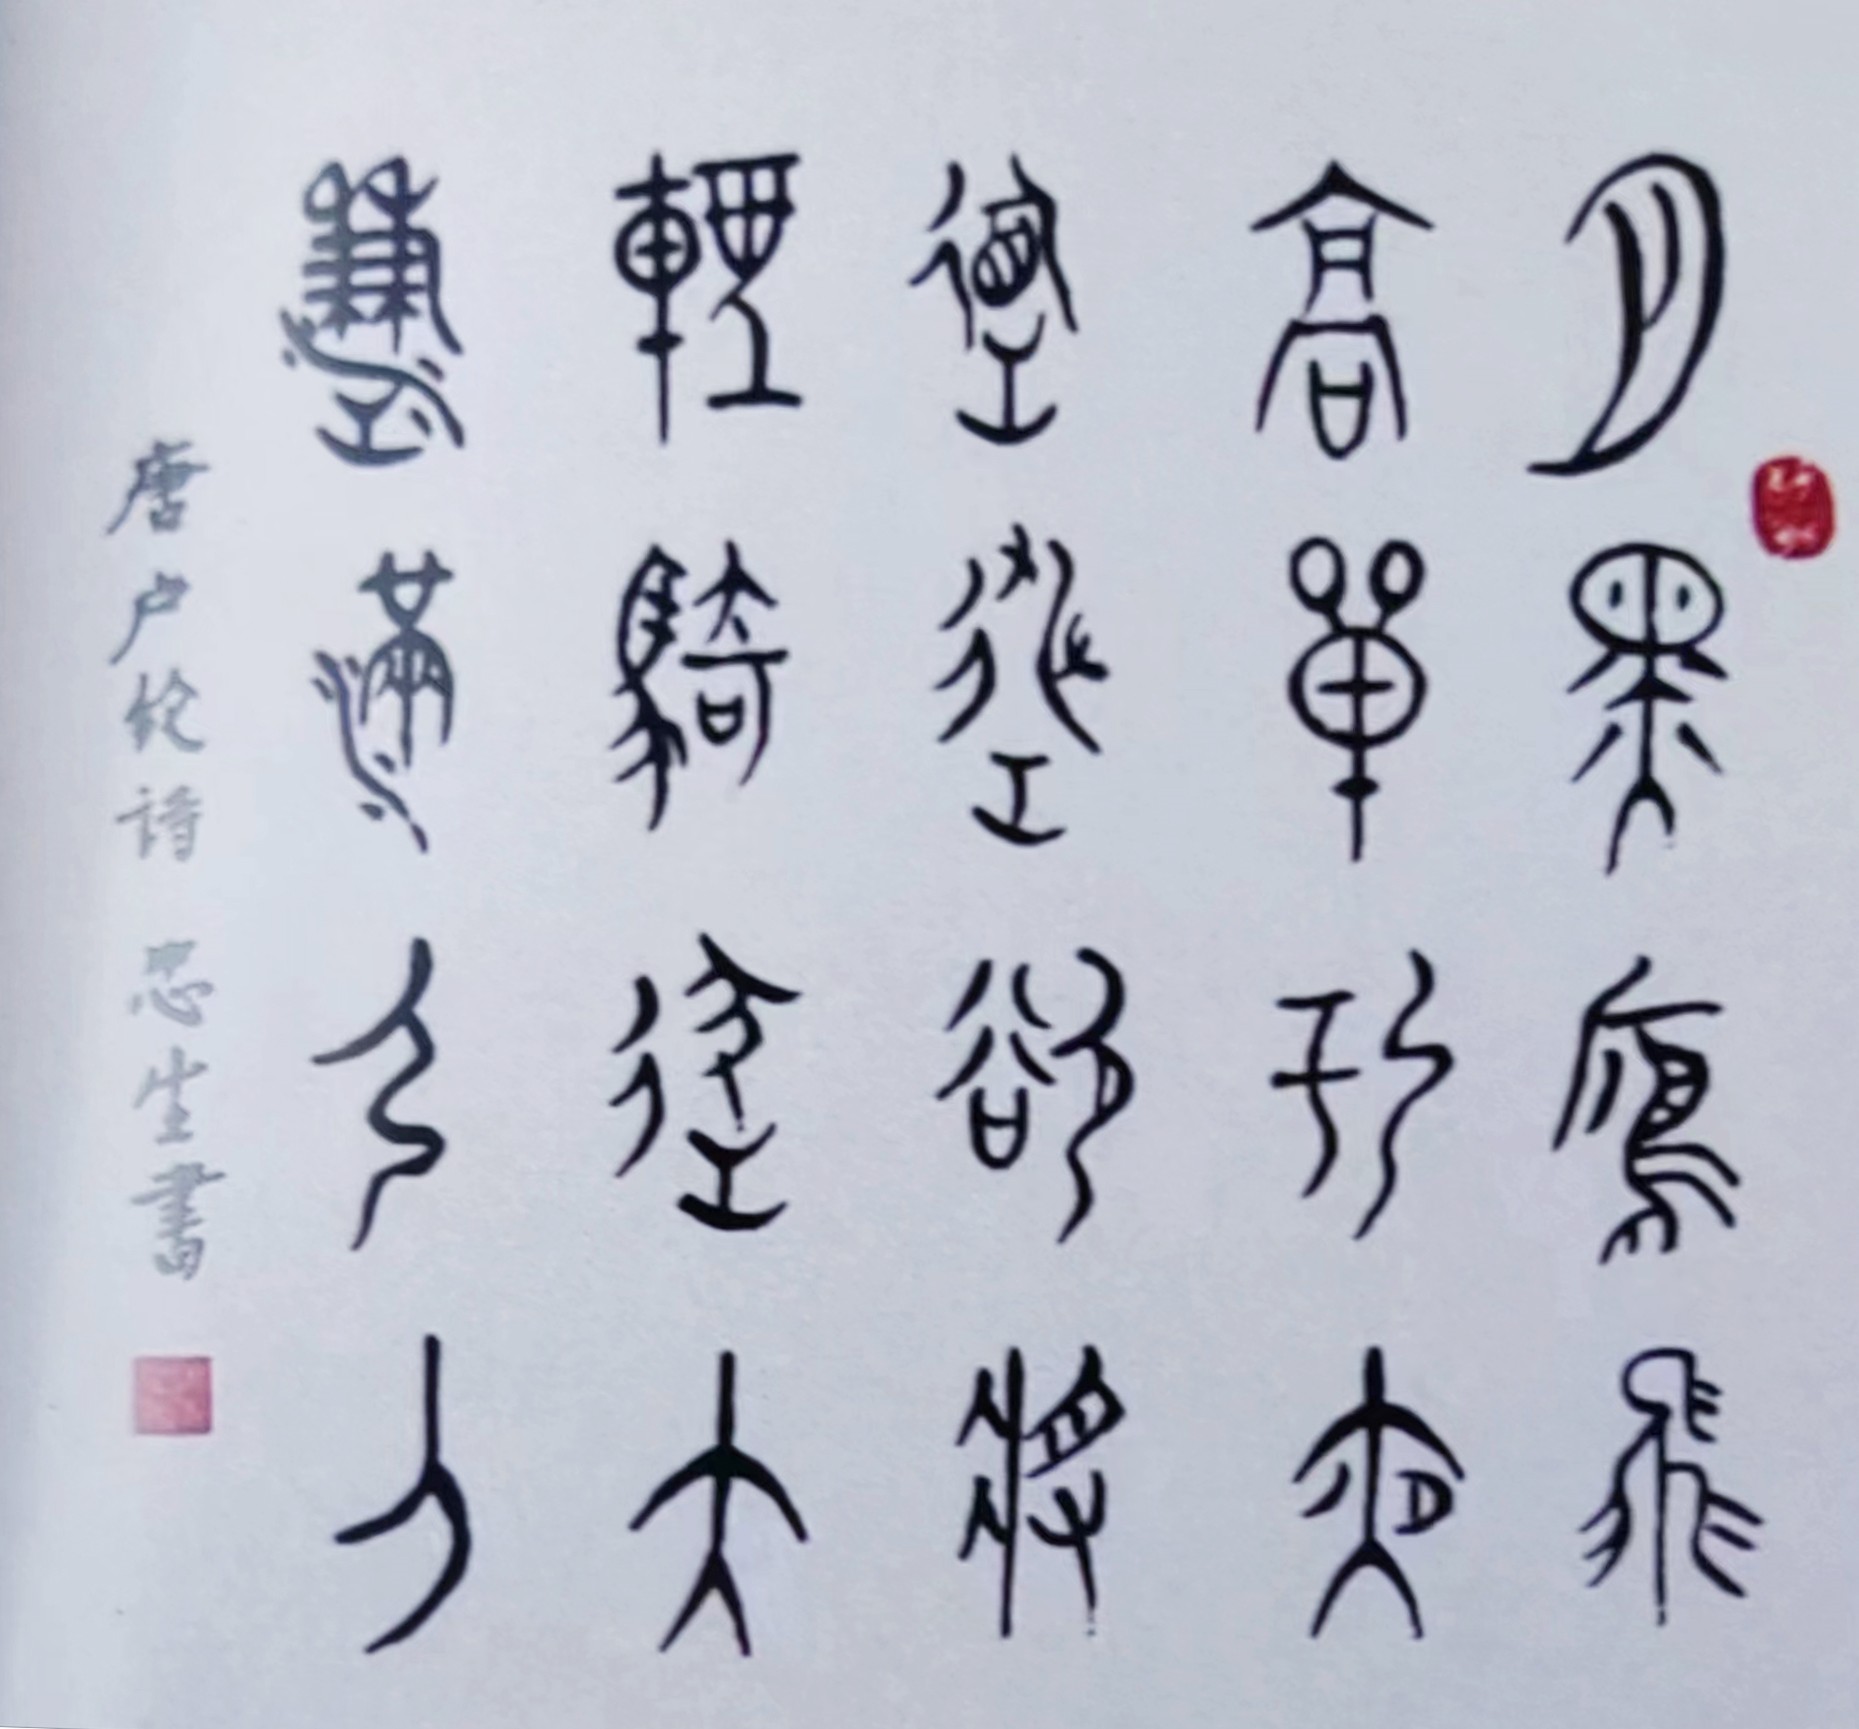 月黑鴈飛
高單于夜
遁逃欲將
輕騎逐大
雪滿弓刀
唐卢纶詩 生書